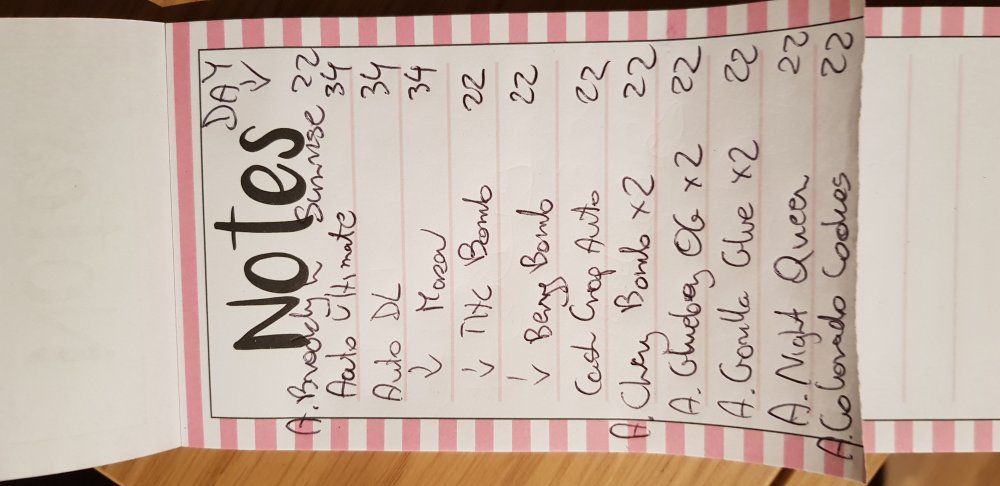 DAY ↓
Notes
A. Brooklyn Sunrise 22
Auto Ultimate 34
Auto DL 34
↓ Mazar 34
↓ THC Bomb 22
↓ Berry Bomb 22
Cash Crop Auto 22
A. Chery Bomb x2 22
A. Glueberry OG x2 22
A. Gorilla Glue x2 22
A. Night Queen 22
A. Colorado Cookies 22